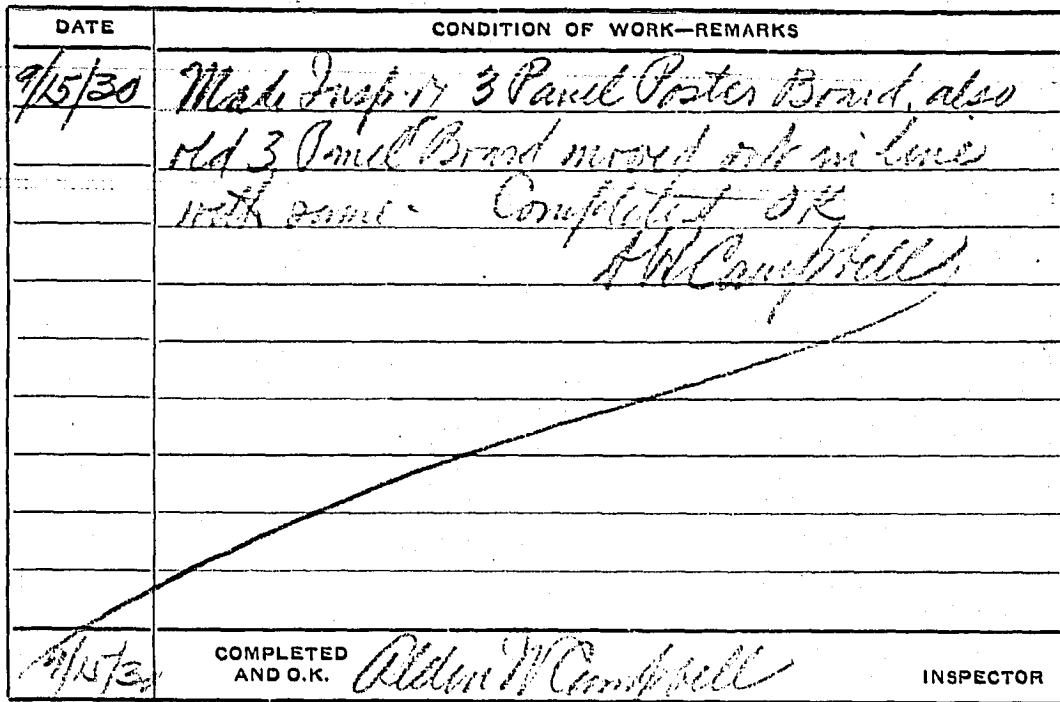 DATE CONDITION OF WORK—REMARKS
9/15/30 Made Insp. 3 Panel Poster Board, also
old 3 Panel Board moved out in line
with same. Completed OK
AW Campbell
9/15/30 COMPLETED AND O.K. Alden W Campbell INSPECTOR